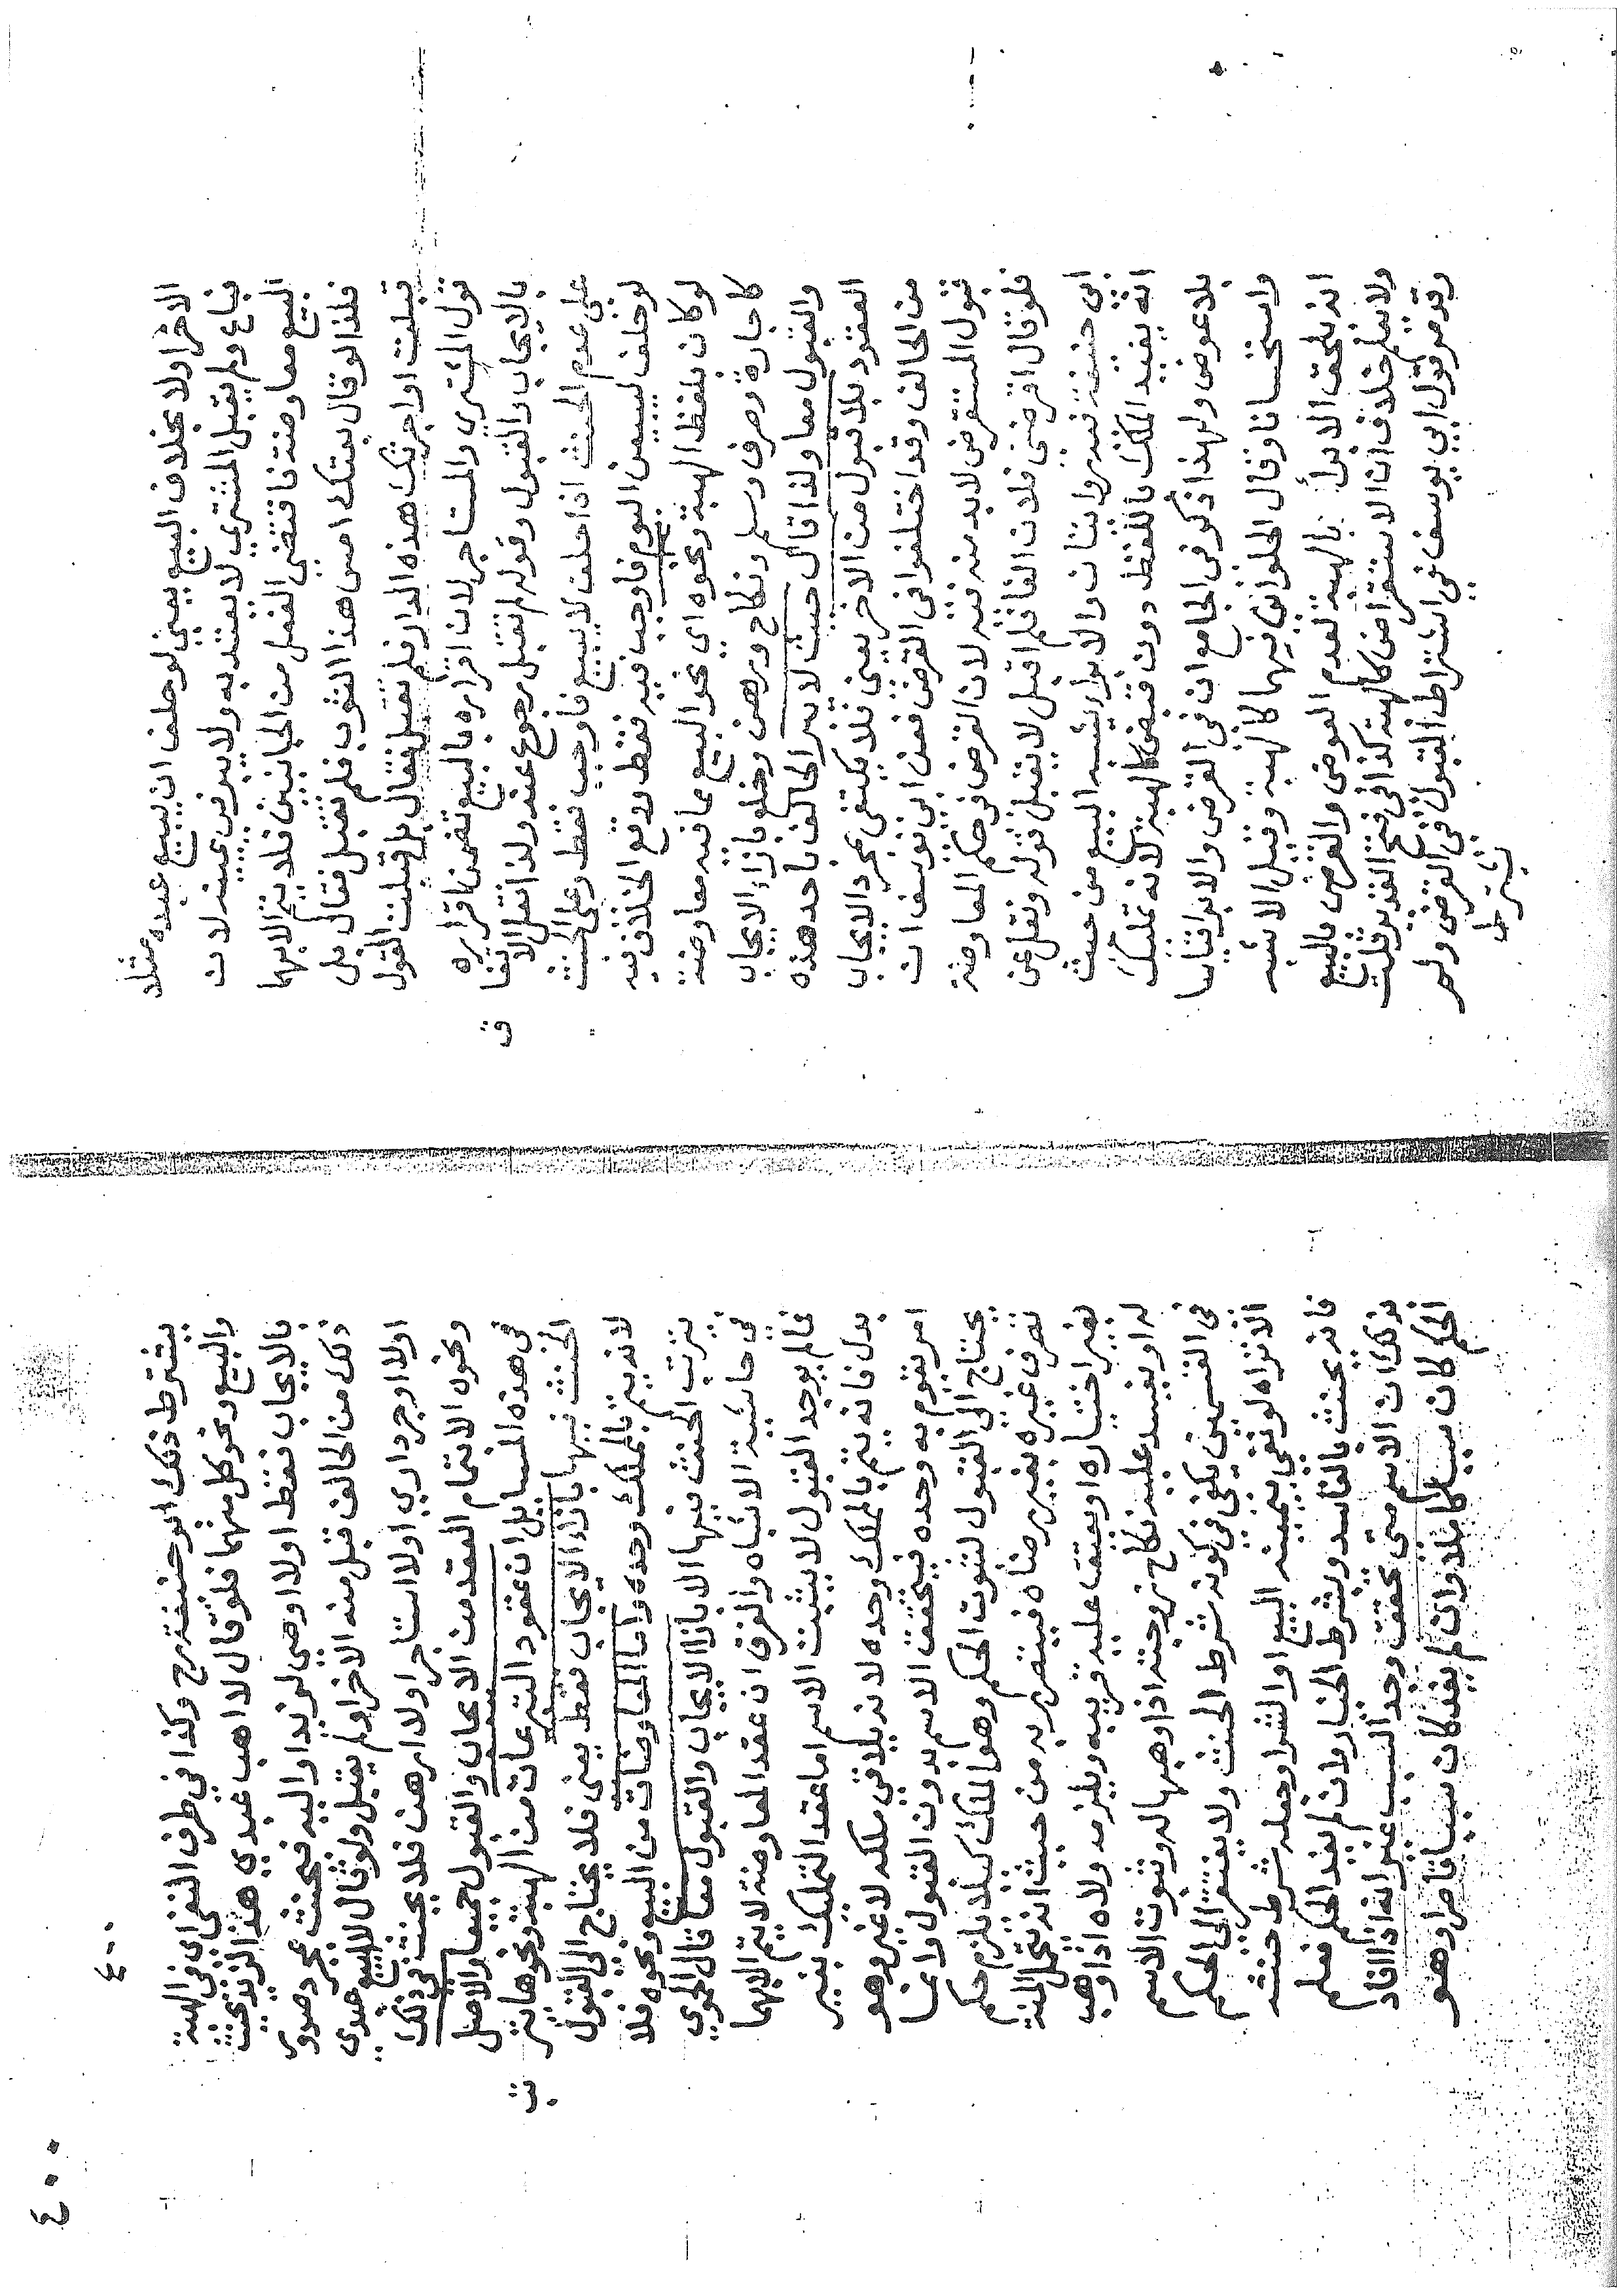 الاخر اولا بخلاف البيع يعني لو حلف ان يبيع عبده مثلا
فباع ولم يقبل المشتري لا يعتد به ولا يبر في يمينه لان
البيع معاوضة فاقتضى الفعل من الجانبين فلا يتم الا بهما
فلذا لو قال بعتك امس هذا الثوب فلم تقبل فقال بل
قبلت او اجرتك هذه الدار فلم تقبل فقال بل قبلت القول
قول المشتري والمستاجر لان اقراره بالبيع تضمن اقراره
بالايجاب والقبول وقوله لم تقبل رجوع عنه ولذا نقل الاتفاق
على عدم الحنث اذا حلف لا يبيع فاوجب فقط وعلى الحنث
لو حلف ليبيعن اليوم فاوجب فيه فقط ووقع الخلاف فيه
لو كان بلفظ الهبة ونحوه اي نحو البيع مما فيه معاوضة
كاجارة وصرف وسلم ونكاح ورهن وخلع بازاء الايجاب
والقبول معا ولذا قال حيث لا يبر الحالف باحد هذه
العقود بلا قبول من الاخر يعني فلا يكتفى بمجرد الايجاب
من الحالف وقد اختلفوا في القرض فعن ابي يوسف ان
قبول المستقرض لا بد منه فيه لان القرض في حكم المعاوضة
فلو قال اقرضني فلان الفا فلم اقبل لا يقبل قوله ونقل عن
ابي حنيفة فيه روايتان والابراء يشبه البيع من حيث
انه يفيد الملك باللفظ دون قبض كالهبة لانه تمليك
بلا عوض ولهذا ذكر في الجامع ان في القرض والابرا قياسا
واستحسانا وقال الحلواني فيهما كالهبة وقيل الاشبه
ان يلحق الابرا بالهبة لعدم العوض والقرض بالبيع
ولا نعلم خلاف ان الاستقراض كالهبة كذا في فتح القدير قلت
وقد مر قول ابي يوسف في اشتراط القبول في القرض ولم
يشترط
٤٠٠
يشترط ذلك ابو حنيفة رح وكذا في طرف النفي اي في الهبة
والبيع ونحو كل منهما فلو قال لا اهب عبدي هذا لزيد يحنث
بالايجاب فقط اولا اوصى لزيد او اليه فيحنث بمجرد صدور
ذلك من الحالف قبل منه الاخر او لم يقبل ولو قال لا ابيع عبدي
اولا اوجر داري اولا استاجر اولا ارهن فلا يحنث في ذلك
ونحوه الا بتمام العقد من الايجاب والقبول جميعا والاصل
في هذه المسايل ان عقود التبرعات من الهبة ونحوها يترتب
الحنث فيها بازاء الايجاب فقط يعني فلا يحتاج الى القبول
لانه يتم بالمملك وحده واما المعاوضات من البيع ونحوه فلا
يترتب الحنث فيها الا بازا الايجاب والقبول معا قال الحموي
في حاشية الاشباه والفرق ان عقد المعاوضة لا يتم الا بهما
فما لم يوجد القبول لا يثبت الاسم اما عقد التمليك بغير
بدل فانه يتم بالمملك وحده لانه يلاقي ملكه لا غير وهو
امر يقوم به وحده فيتحقق الاسم بدون القبول وانما
يحتاج الى القبول لثبوت الحكم وهو الملك كيلا يلزم حكم
تصرف غيره بغير رضاه فيتضرر به من حيث انه يتحمل المنة
بغير اختياره او يعتق عليه قريبه ويلزمه ولاه اذا وهب
له او يفسد عليه نكاح زوجته اذا وهبها له وثبوت الاسم
في القسمين يكفي في كونه شرط الحنث ولا يفتقر الى الحكم
الا تراه لو نفى بيمينه البيع او الشرا وجعله شرط حنثه
فانه يحنث بالفاسد وبشرط الخيار وان لم يفد الحكم فعلم
بذلك ان الاسم متى تحقق وجد السبب غير انه اذا افاد
الحكم كان سببا كاملا وان لم يفد كان سببا قاصرا وهو
٤٠٠